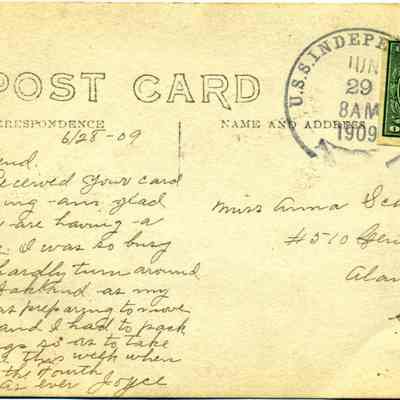 POST CARD
RRESPONDENCE
NAME AND ADDRESS
U.S.S. INDEPE
JUN
29
8AM
1909
6/28-09
end.
eceived your card
ing - am glad
u are having - a
e. I was so busy
hardly turn around
Oakland - as my
as preparing to move
and I had to pack
gs so as to take
e this week when
the Fourth
As ever Joyce
Miss Anna Sc
#510
Ala